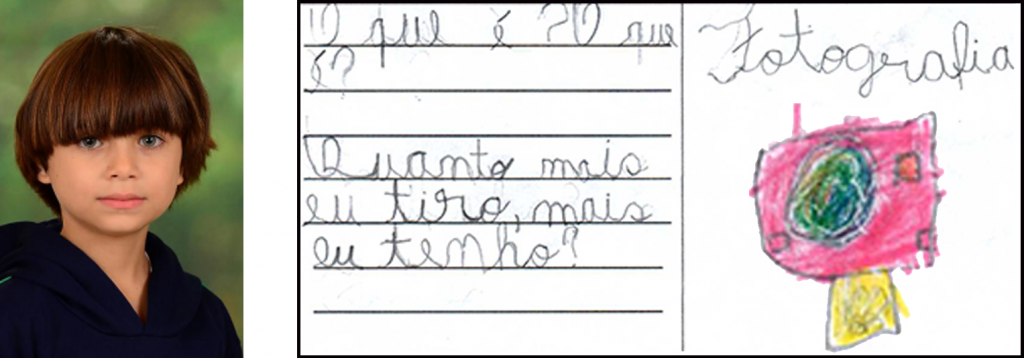 O que é? O que
é?
Quanto mais
eu tiro, mais
eu tenho?
Fotografia